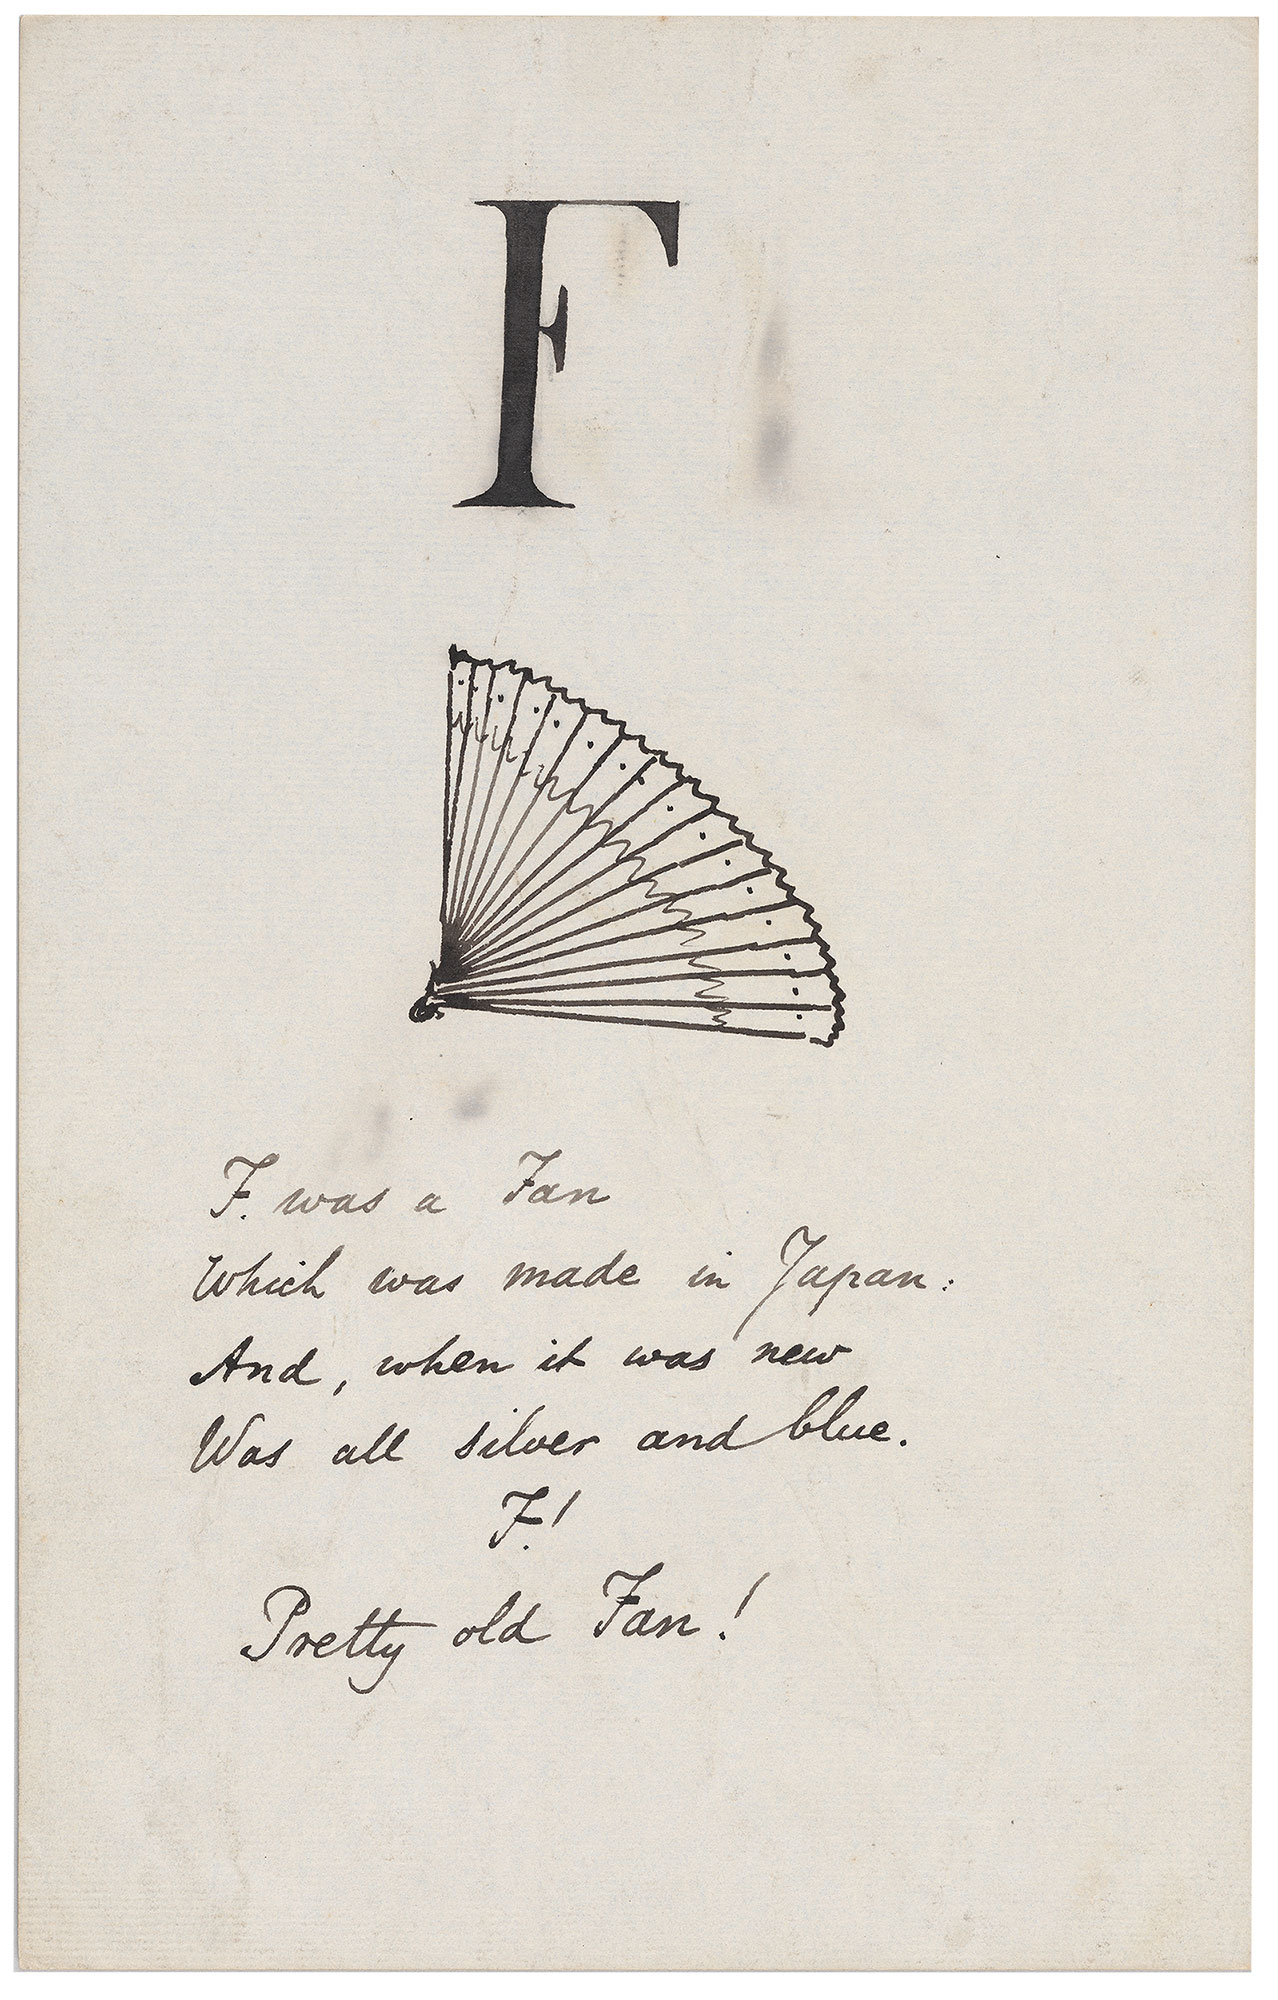 F
F. was a Fan
Which was made in Japan:
And, when it was new
Was all silver and blue.
F.!
Pretty old Fan!